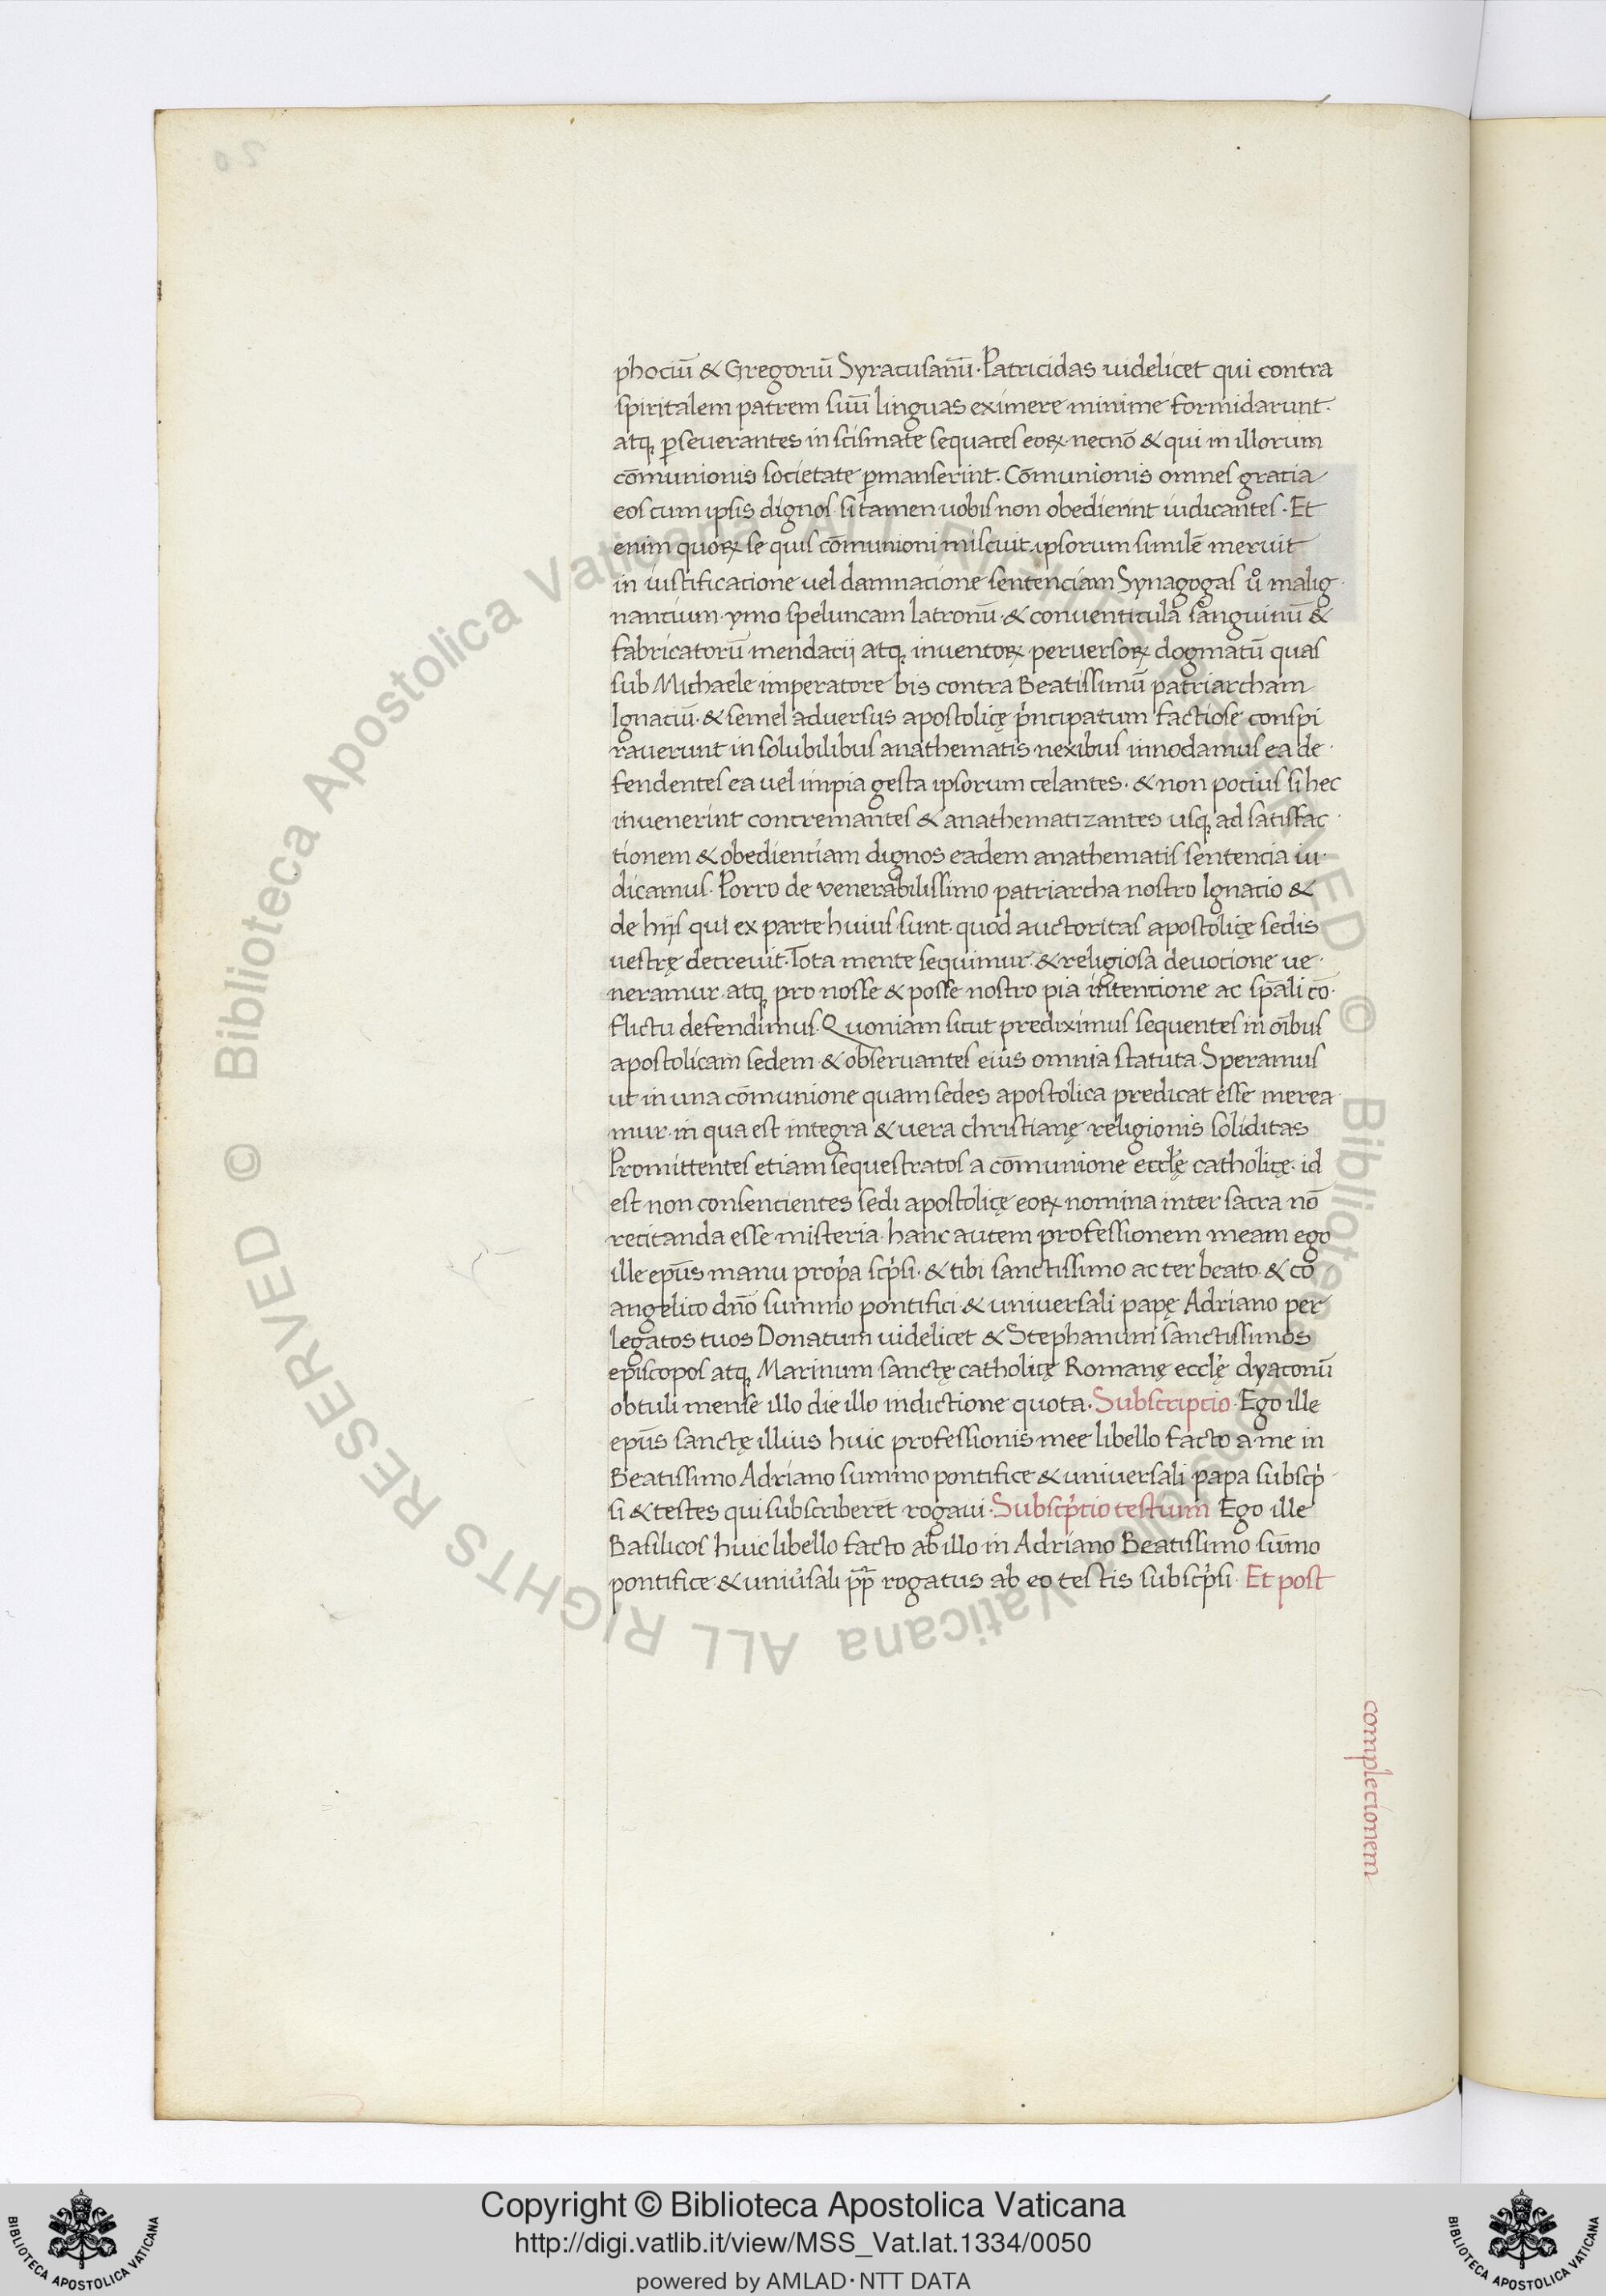 phociū & Gregoriū Syracusanū · Patricidas uidelicet qui contra
spiritalem patrem suū linguas eximere minime formidarunt ·
atq; ꝑseuerantes in scismate sequaces eoꝝ necnō & qui in illorum
cōmunionis societate ꝑmanserint · Cōmunionis omnes gratia
eos cum ipsis dignos si tamen uobis non obedierint iudicantes · Et
enim quoꝝ se quis cōmunioni miscuit ipsorum similē meruit
in iustificatione uel damnacione sentenciam Synagogas uͦ malig
nantium · ymo speluncam latronū · & conuenticula sanguinū &
fabricatorū mendacij atq; inuentoꝝ peruersoꝝ dogmatū quas
sub Michaele imperatore bis contra Beatissimū patriarcham
Ignaciū · & semel aduersus apostolicę pͥncipatum factiose conspi
rauerunt in solubilibus anathematis nexibus innodamus ea de ·
fendentes ea uel impia gesta ipsorum celantes · & non pocius si hec
inuenerint concremantes & anathematizantes usq; ad satisfac ·
tionem & obedientiam dignos eadem anathematis sentencia iu ·
dicamus · Porro de venerabilissimo patriarcha nostro Ignacio &
de hijs qui ex parte huius sunt · quod auctoritas apostolicę sedis
uestrę decreuit · Tota mente sequimur · & religiosa deuocione ue ·
neramur · atq; pro nosse & posse nostro pia intencione ac sp̄ali cō ·
flictu defendimus · Quoniam sicut prediximus sequentes in oībus
apostolicam sedem · & obseruantes eius omnia statuta Speramus
ut in una cōmunione quam sedes apostolica predicat esse merea ·
mur · in qua est integra & uera christianę religionis soliditas
Promittentes etiam sequestratos a cōmunione eccłę catholicę · id
est non consencientes sedi apostolicę eoꝝ nomina inter sacra nō
recitanda esse misteria · hanc autem professionem meam ego
ille ep̄us manu propͥa scpͥsi · & tibi sanctissimo ac ter beato · & co
angelico dn̄o summo pontifici & uniuersali papę Adriano per
legatos tuos Donatum uidelicet & Stephanum sanctissimos
episcopos atq; Marinum sanctę catholicę Romanę eccłę dyaconū
obtuli mense illo die illo indictione quota · Subscriptio · Ego ille
ep̄us sanctę illius huic professionis mee libello facto a me in
Beatissimo Adriano summo pontifice & uniuersali papa subscpͥ ·
si & testes qui subscriberēt rogaui · Subscpͥtio testium Ego ille
Basilicos huic libello facto ab illo in Adriano Beatissimo sūmo
pontifice & uniuͥsali pp̄ rogatus ab eo testis subscpͥsi · Et post
complecionem
© Biblioteca Apostolica Vaticana ALL RIGHTS RESERVED © Biblioteca Apostolica Vaticana ALL RIGHTS RESERVED
Copyright © Biblioteca Apostolica Vaticana
http://digi.vatlib.it/view/MSS_Vat.lat.1334/0050
powered by AMLAD · NTT DATA
BIBLIOTECA APOSTOLICA VATICANA
BIBLIOTECA APOSTOLICA VATICANA